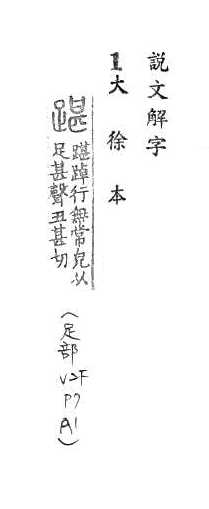 説文解字
1大徐本
踸踔行無常皃从
足甚聲丑甚切
(足部 V2F P7 A1)